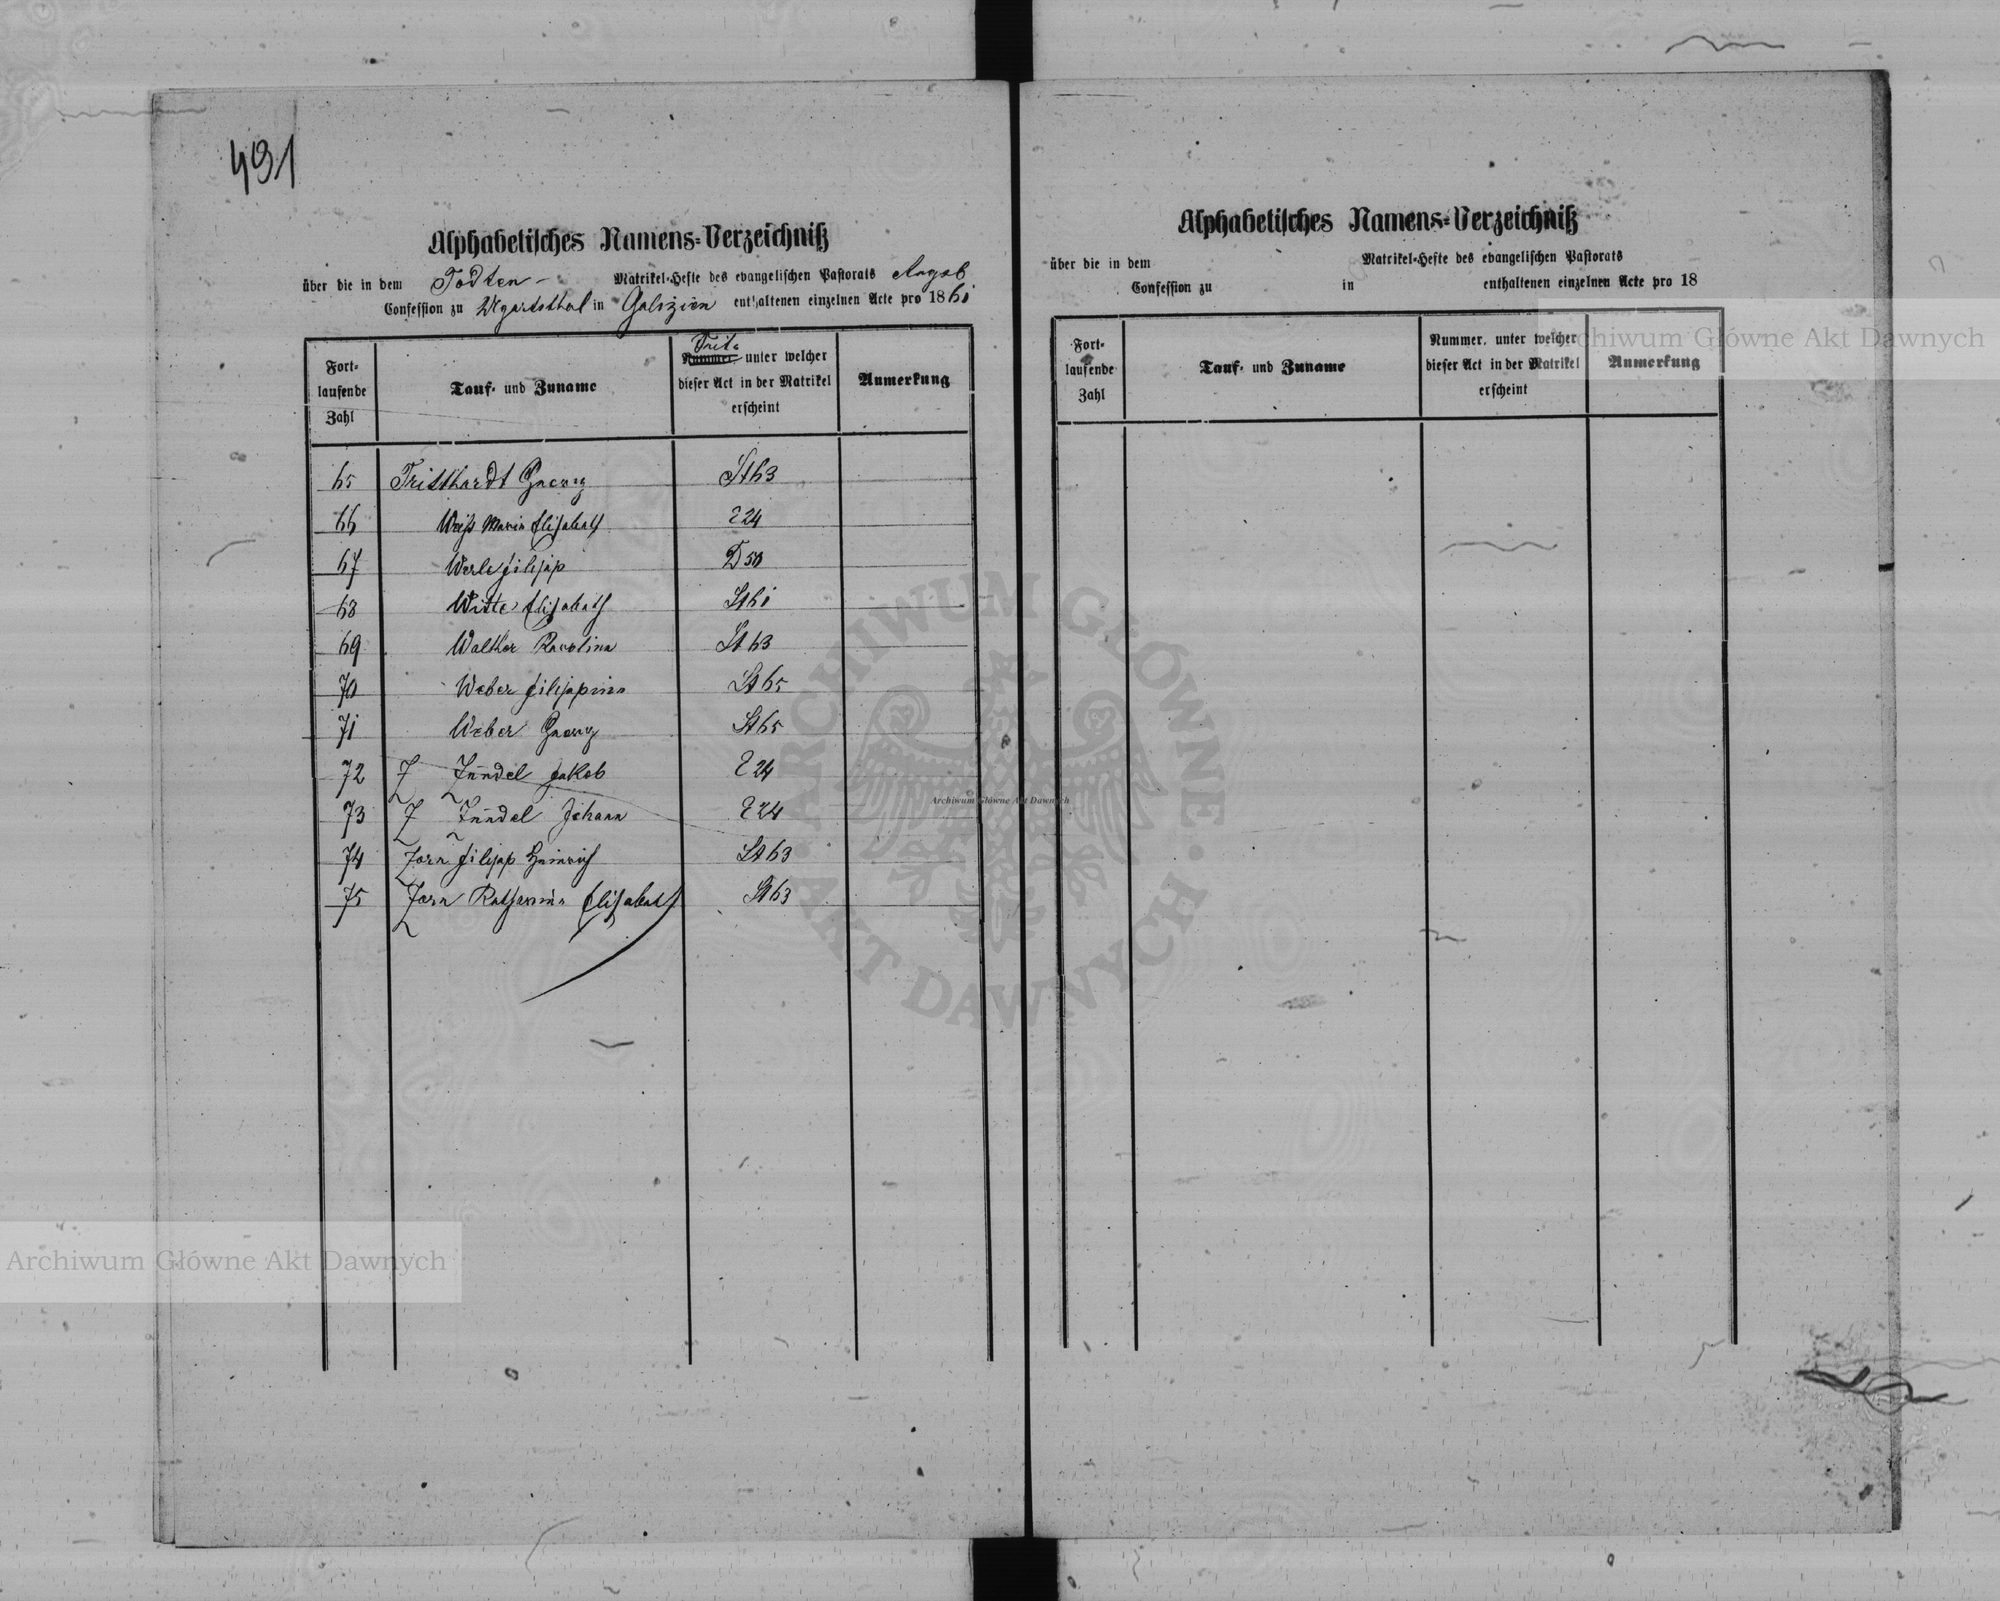 491
Alphabetisches Namens-Verzeichniß
über die in dem Todten- Matrikel-Hefte des evangelischen Pastorats Augsb
Confession zu Ugartsthal in Galizien enthaltenen einzelnen Acte pro 1861
Fort-
laufende
Zahl
Tauf- und Zuname
Seite
Nummer unter welcher
dieser Act in der Matrikel
erscheint
Anmerkung
65 Tristhardt Georg St 63
66 Weiß Maria Elisabeth E 24
67 Werle Filipp D 50
68 Witte Elisabeth St 61
69 Walther Karolina St 63
70 Weber Filippina St 65
71 Weber Georg St 65
72 Z Zündel Jakob E 24
73 Z Zündel Johann E 24
74 Zorn Filipp Heinrich St 63
75 Zorn Katharina Elisabeth St 63
Alphabetisches Namens-Verzeichniß
über die in dem Matrikel-Hefte des evangelischen Pastorats
Confession zu in enthaltenen einzelnen Acte pro 18
Fort-
laufende
Zahl
Tauf- und Zuname
Nummer, unter welcher
dieser Act in der Matrikel
erscheint
Anmerkung
Archiwum Główne Akt Dawnych
ARCHIWUM GŁÓWNE
AKT DAWNYCH
Archiwum Główne Akt Dawnych
Archiwum Główne Akt Dawnych